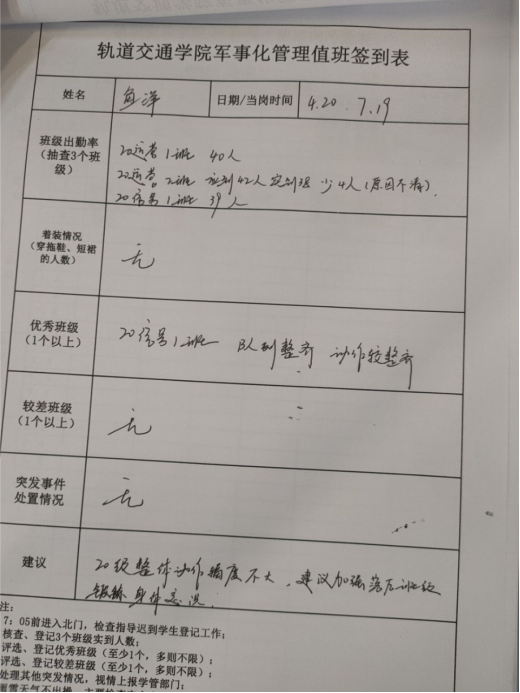 轨道交通学院军事化管理值班签到表
姓名
日期/当岗时间 4.20. 7.19
班级出勤率
(抽查3个班
级)
20运营1班 40人
20运营2班 应到42人实到38 少4人(原因不清).
20信号1班 39人
着装情况
(穿拖鞋、短裙
的人数)
无
优秀班级
(1个以上)
20信号1班 队列整齐 动作较整齐
较差班级
(1个以上)
无
突发事件
处置情况
无
建议
20级整体动作幅度不大,建议加强落后班级
锻炼身体意识.
注:
7:05前进入北门,检查指导迟到学生登记工作;
核查、登记3个班级实到人数;
评选、登记优秀班级(至少1个,多则不限);
评选、登记较差班级(至少1个,多则不限);
处理其他突发情况,视情上报学管部门;
雨雪天气不出操